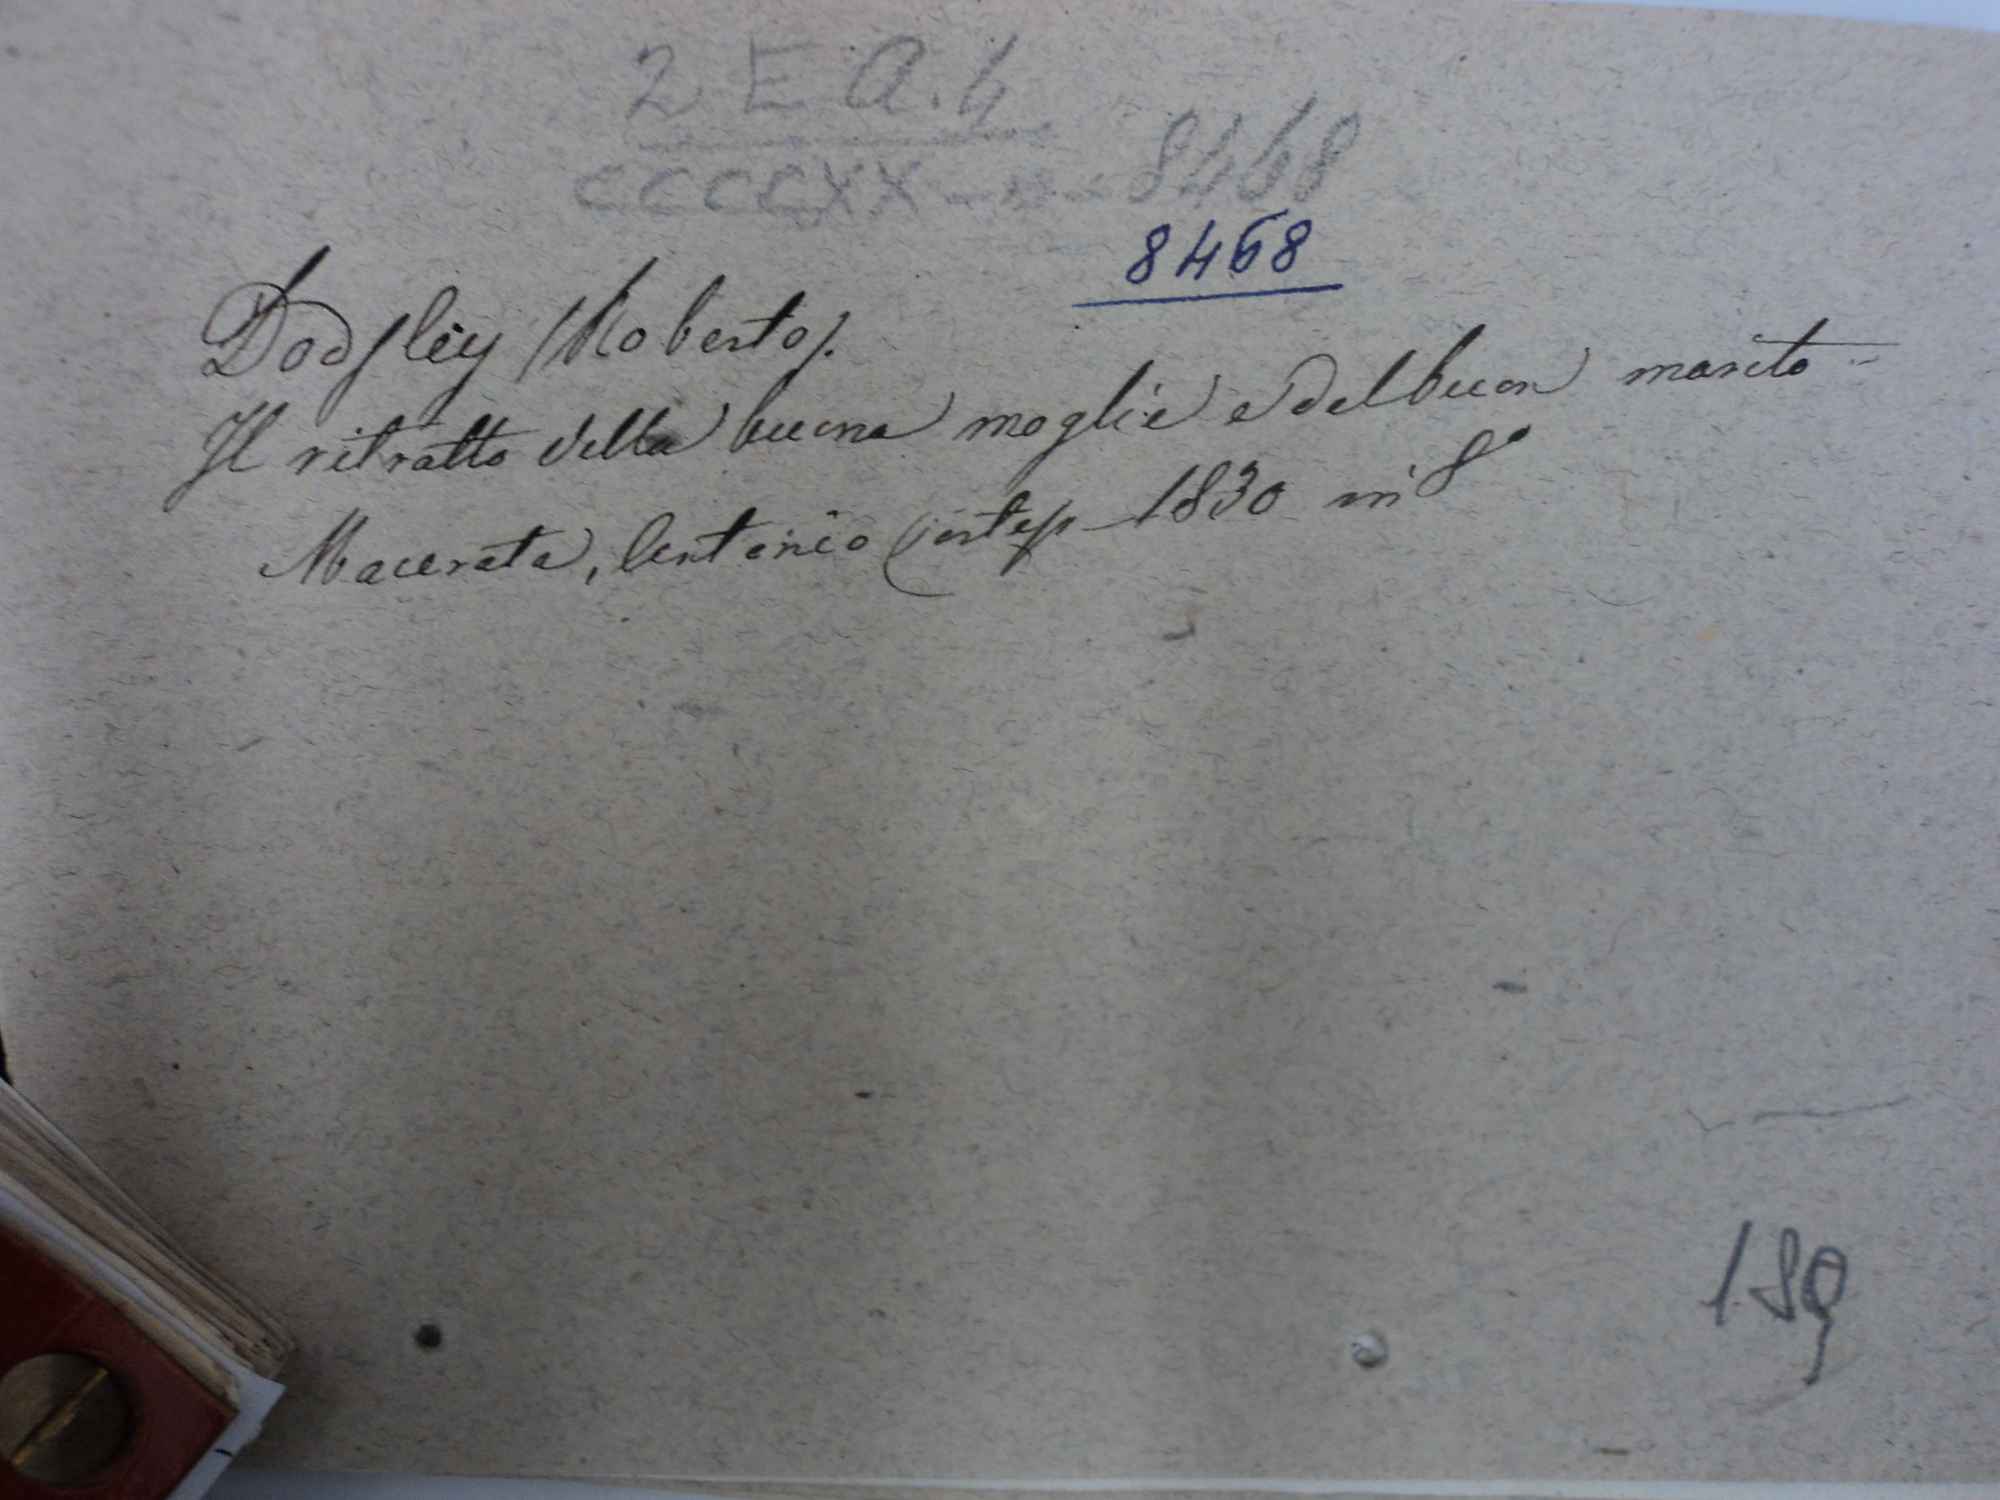 2 E A. 4
CCCCXX - n - 8468
8468
Dodsley (Roberto).
Il ritratto della buona moglie e del buon marito -
Macerata, Antonio Cortesi 1830 in 8°
189